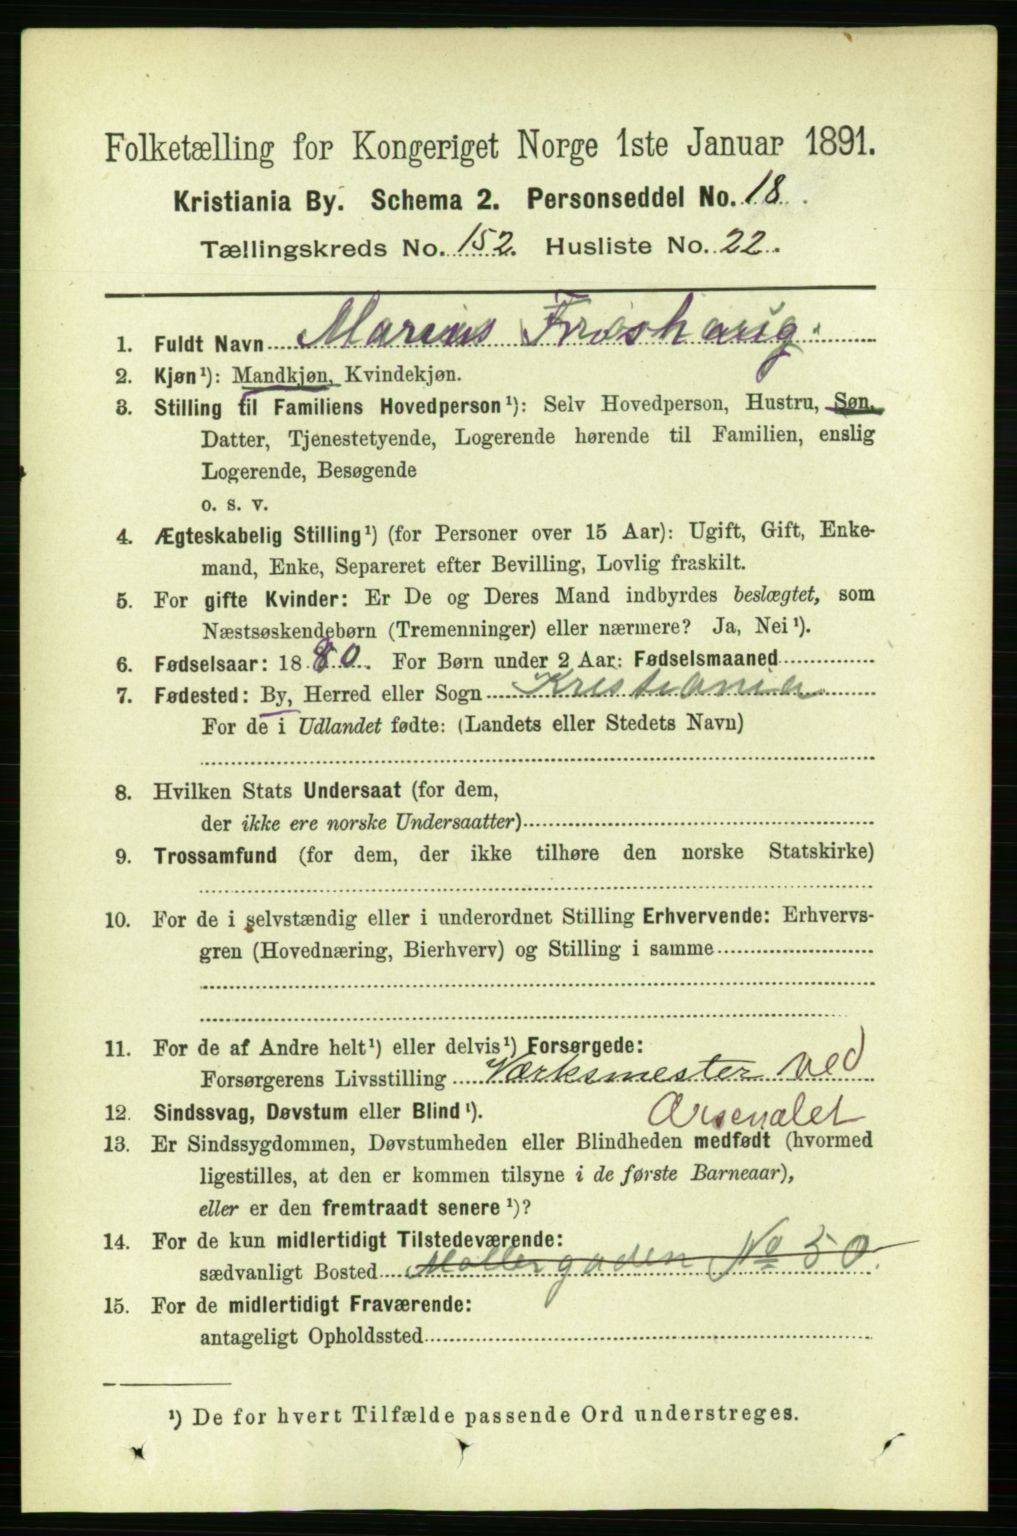 Folketælling for Kongeriget Norge 1ste Januar 1891.
Kristiania By. Schema 2. Personseddel No. 18.
Tællingskreds No. 152. Husliste No. 22.
1. Fuldt Navn Marius Froshaug.
2. Kjøn¹): Mandkjøn, Kvindekjøn.
3. Stilling til Familiens Hovedperson¹): Selv Hovedperson, Hustru, Søn,
Datter, Tjenestetyende, Logerende hørende til Familien, enslig
Logerende, Besøgende
o. s. v.
4. Ægteskabelig Stilling¹) (for Personer over 15 Aar): Ugift, Gift, Enke-
mand, Enke, Separeret efter Bevilling, Lovlig fraskilt.
5. For gifte Kvinder: Er De og Deres Mand indbyrdes beslægtet, som
Næstsøskendebørn (Tremenninger) eller nærmere? Ja, Nei¹).
6. Fødselsaar: 1880. For Børn under 2 Aar: Fødselsmaaned
7. Fødested: By, Herred eller Sogn Kristiania
For de i Udlandet fødte: (Landets eller Stedets Navn)
8. Hvilken Stats Undersaat (for dem,
der ikke ere norske Undersaatter)
9. Trossamfund (for dem, der ikke tilhøre den norske Statskirke)
10. For de i selvstændig eller i underordnet Stilling Erhvervende: Erhvervs-
gren (Hovednæring, Bierhverv) og Stilling i samme
11. For de af Andre helt¹) eller delvis¹) Forsørgede:
Forsørgerens Livsstilling Værksmester ved
12. Sindssvag, Døvstum eller Blind¹). Arsenalet
13. Er Sindssygdommen, Døvstumheden eller Blindheden medfødt (hvormed
ligestilles, at den er kommen tilsyne i de første Barneaar),
eller er den fremtraadt senere¹)?
14. For de kun midlertidigt Tilstedeværende:
sædvanligt Bosted Møllergaden No 50.
15. For de midlertidigt Fraværende:
antageligt Opholdssted
¹) De for hvert Tilfælde passende Ord understreges.